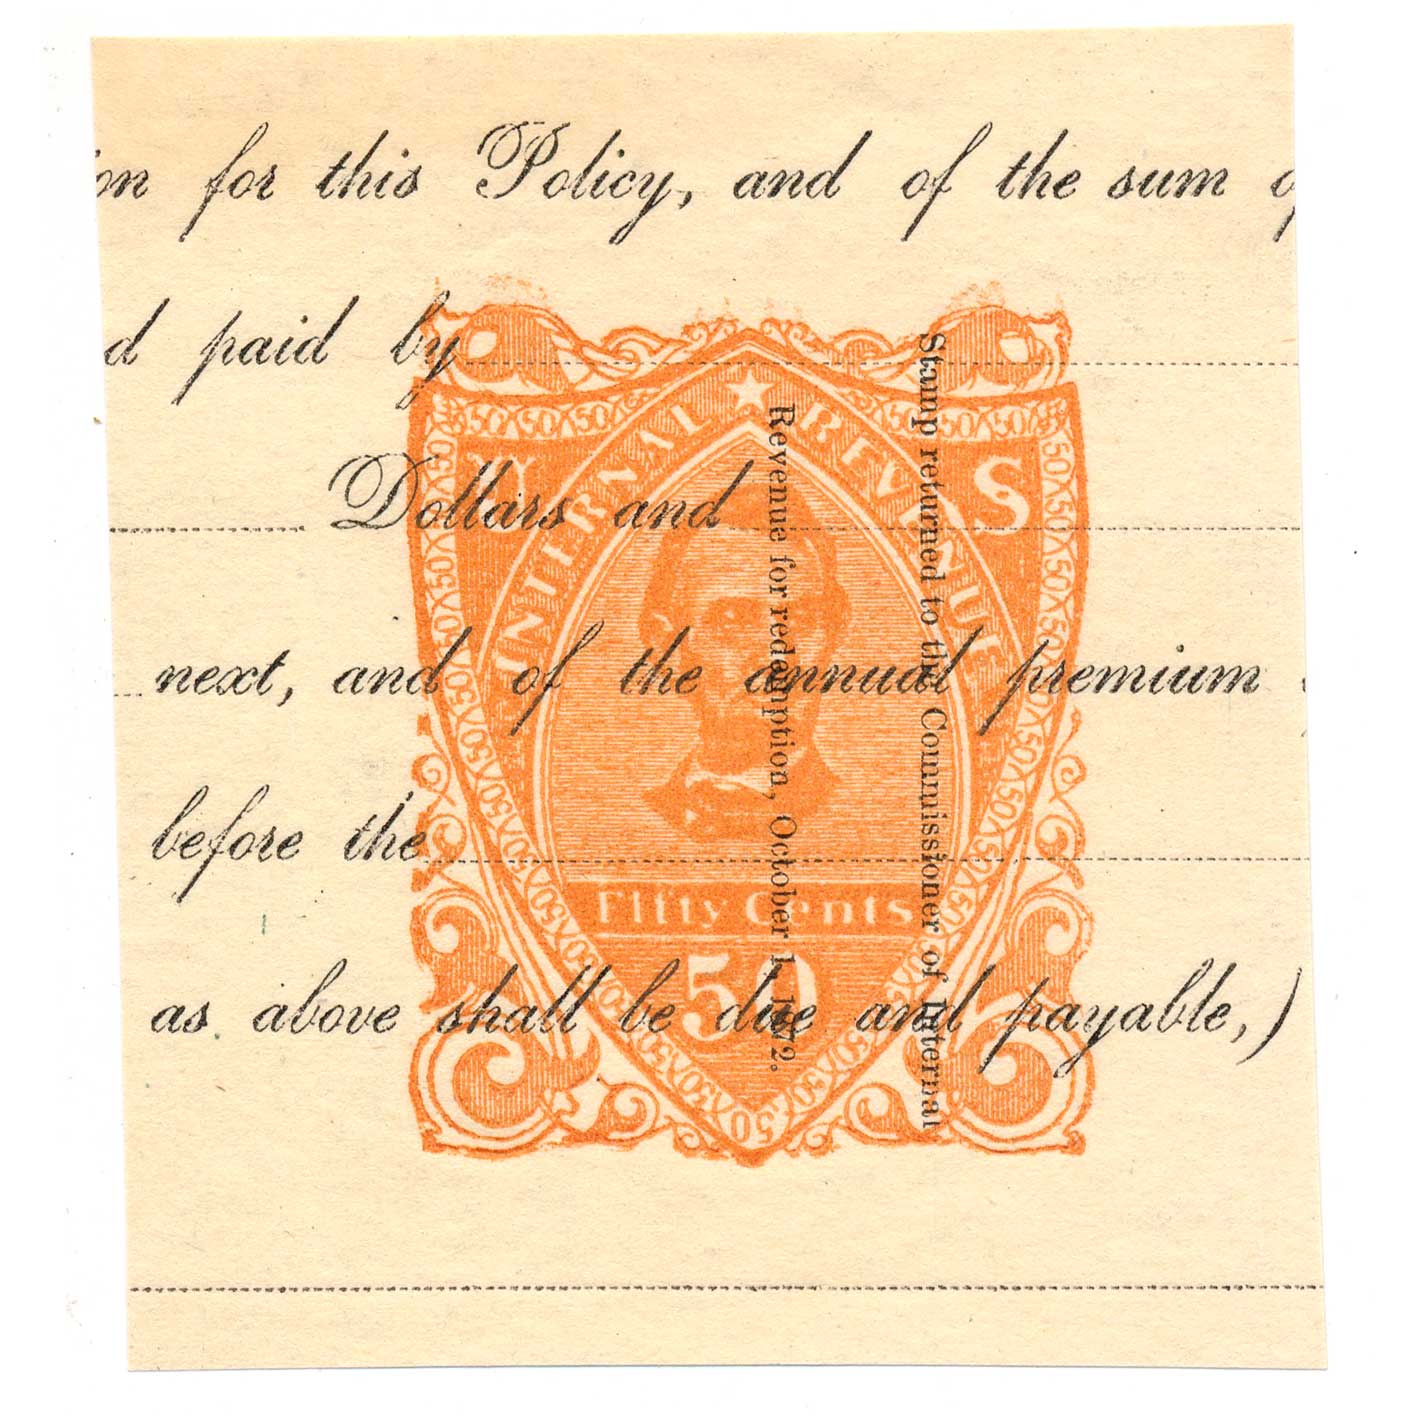 on for this Policy, and of the sum of
d paid by
Dollars and
next, and of the annual premium
before the
as above shall be due and payable,)
U S
INTERNAL REVENUE
Fifty Cents
50
Stamp returned to the Commissioner of Internal
Revenue for redemption, October 1, 1872.